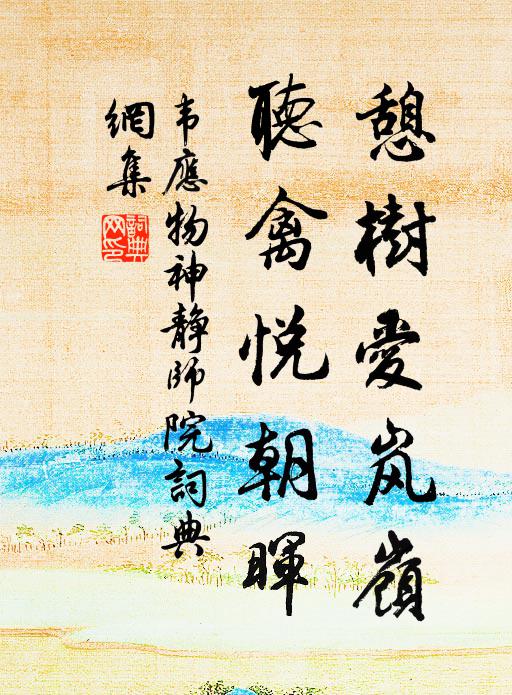 憩樹愛岚嶺
聽禽悦朝暉
韦應物神静師院詞典
網集
詞典网印